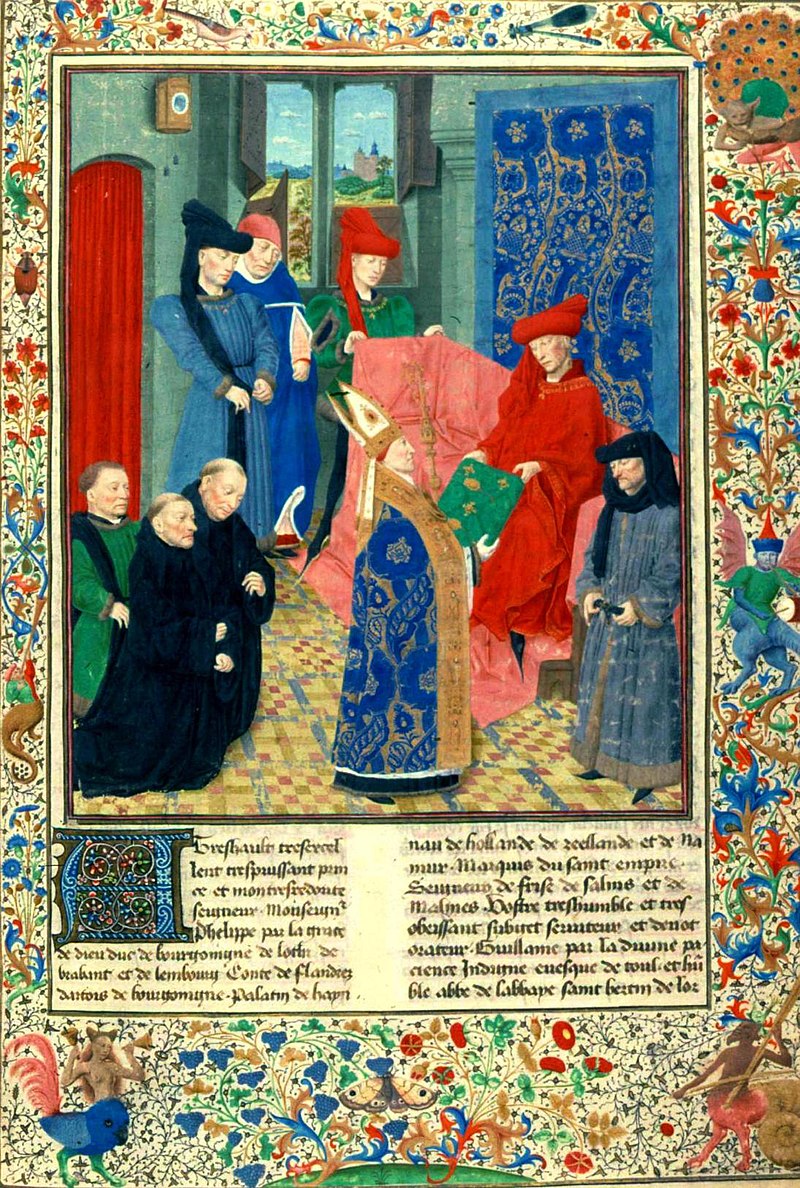 A Treshault tresexcel
lent trespuissant prin
ce et mon tresredoubte
seigneur Monseignʳ
Phelippe par la grace
de dieu duc de bourgomgne de loth de
brabant et de lembourg Conte de flandres
dartois de bourgomgne. Palatin de hayn
nau de hollande de zeellande et de Na
mur. Marquis du saint empire.
Seigneur de frise de salins et de
Malines. Vostre treshumble et tres
obeissant subget serviteur et devot
orateur. Guillame par la divine pa
cience Indigne evesque de toul. et hū
ble abbe de labbaye saint bertin de lor